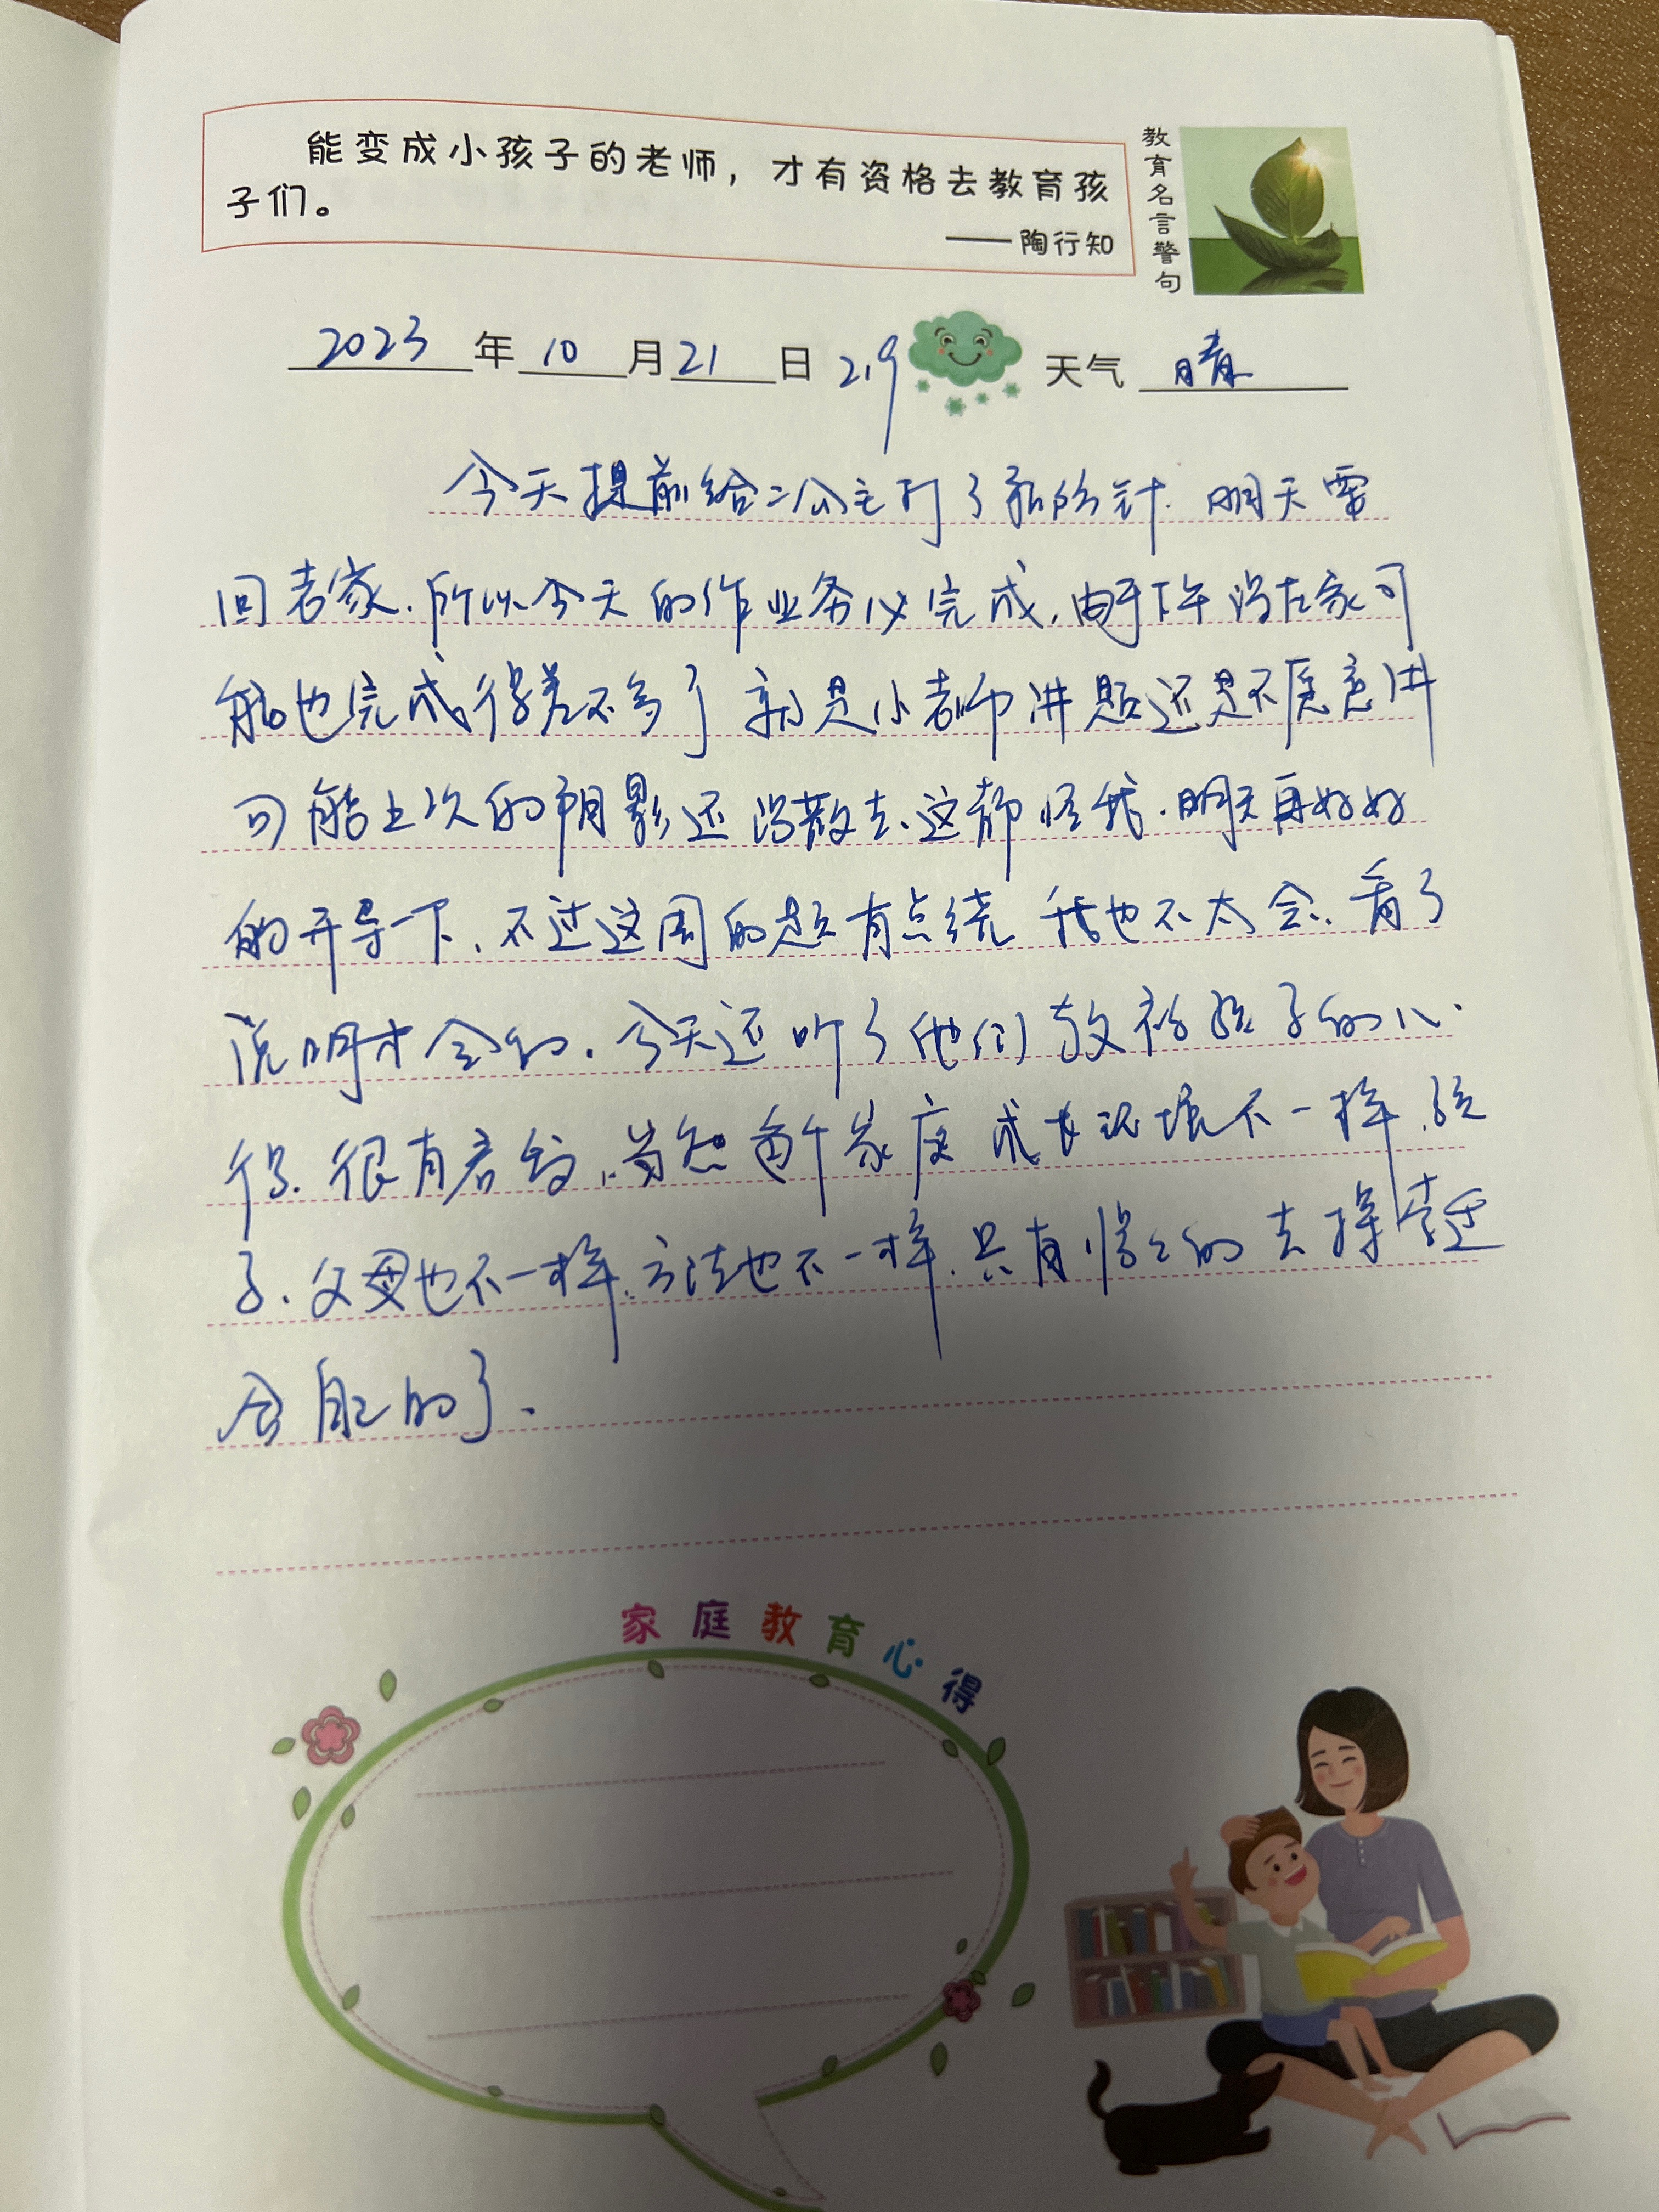 能变成小孩子的老师，才有资格去教育孩
子们。
——陶行知
教育名言警句
2023年10月21日 219 天气 晴
今天提前给二公主打了预防针.明天需
回老家.所以今天的作业务必完成,由于下午没在家可
能也完成得差不多了 就是小老师讲题还是不愿意讲
可能上次的阴影还没散去、这都怪我.明天再好好
的开导一下、不过这周的题有点绕 我也不太会、看了
说明才会的.今天还听了他们教育孩子的心
得.很有启发.当然每个家庭成长环境不一样.孩
子.父母也不一样.方法也不一样.只有慢慢的去摸索适
合自己的了.
家庭教育心得